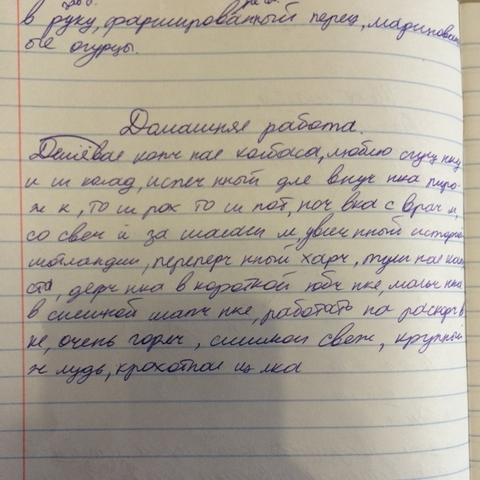 в руку, фаршированный перец, маринован
ые огурцы.
Домашняя работа.
Дешёвая копч ная колбаса, люблю сгущ нку
и ш колад, испеч нный для внуч нка пиро-
ж к, то ш рох то ш пот, ноч вка с врач м,
со свеч й за шалаш м, увлеч нный
шотландии, переперч нный харч, туш ная
ста, дерч нка в короткой юбч нке, мальч нка
в смешной шапч нке, работать на раскорч в
ке, очень горяч , слишком свеж , крупный
ж лудь, крохотная щ лка